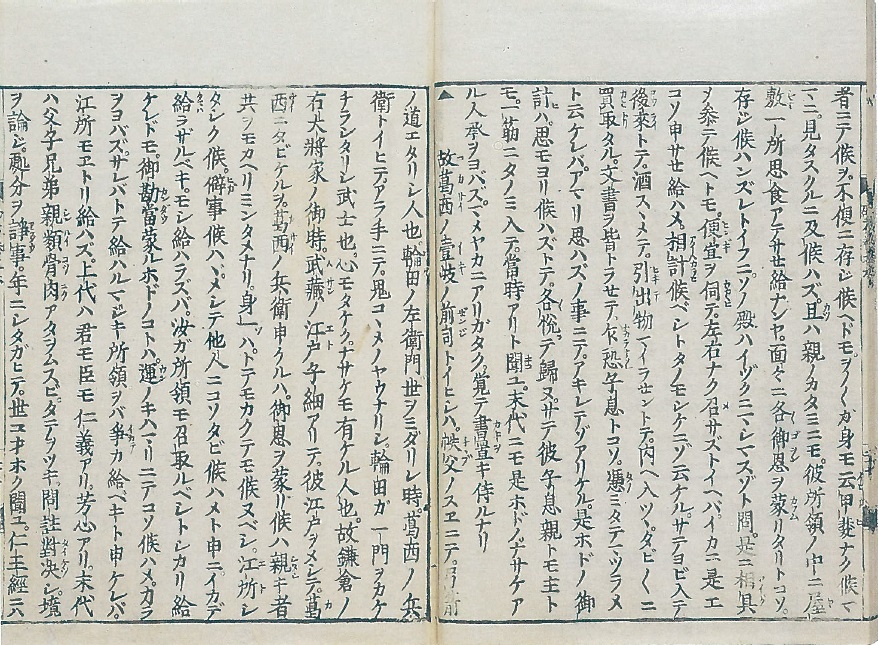 者ニテ候ヲ不便ニ存シ候ヘドモヲノ〱ガ身モ云甲斐ナク候マ
マニ見タスクルニ及候ハズ且ハ親ノカタミニモ彼所領ノ中ニ屋
敷一所思食アテサセ給ナンヤ面々ニ各御恩ヲ蒙リタリトコソ
存シ候ハンズレトイフニソノ殿ハイヅクニマシマスゾト問是ニ相具
ヲ参テ候ヘトモ便宜ヲ伺テ左右ナク召サズトイヘバイカニ是エ
コソ申サセ給ハメ相計候ベシトタノモシケニゾ云ケルサテヨビ入テ
後來トテ酒スヽメテ引出物一イラセントテ内ヘ入ツヽタビ〱ニ
買取タル文書ヲ皆トラセテ今ハ恐ナガラ子息トコソ憑ミタテマツラメ
ト云ケレバアマリ思ハズノ事ニテアキレテゾアリケル是ホドノ御
計ハ思モヨリ候ハズトテ各悦テ歸ヌサテ彼子息親トモ主ト
モ一筋ニタノミ入テ當時アリト聞ユ末代ニモ是ホドノナサケア
ル人希ヲヨバズマメヤカニアリガタク覚テ書置キ侍ルナリ
▲故葛西ノ壹岐ノ前司トイヒシハ秩父ノスヱニテ
ノ道エタリシ人也輪田ノ左衛門世ヲミダリシ時葛西ノ兵
衛トイヒテアラ手ニテ鬼コヽメノヤウナリシ輪田ガ一門ヲカケ
チランタリシ武士也心モタケクナサケモ有ケル人也故鎌倉ノ
右大將家ノ御時武藏ノ江戸子細アリテ彼江戸ヲメシテ葛
西ニタビケルヲ葛西ノ兵衛申クルハ御恩ヲ蒙リ候ハ親キ者
共ヲモカヘリミンタメナリ身一ハトテモカクテモ候ヌベシ江所シ
タシク候僻事候ハヾメシテ他人ニコソタビ候ハメト申ニイカデ
給ラザルベキモシ給ハラズバ汝ガ所領モ召取ルベシトシカリ給
ケレドモ御勘當蒙ルホドノコトハ運ノキハマリニテコソ候ハメカラ
ヲヨバズサレバトテ給ハルマジキ所領ヲバ爭カ給ベキト申ケレバ
江所モエトリ給ハズ上代ハ君モ臣モ仁義アリ芳心アリ末代
ハ父子兄弟親類骨肉アタヲムスビタテヲツキ問註對決シ境
ヲ論シ配分ヲ諍事年ニシタガヒテ世コオホク聞ユ仁王經ニハ